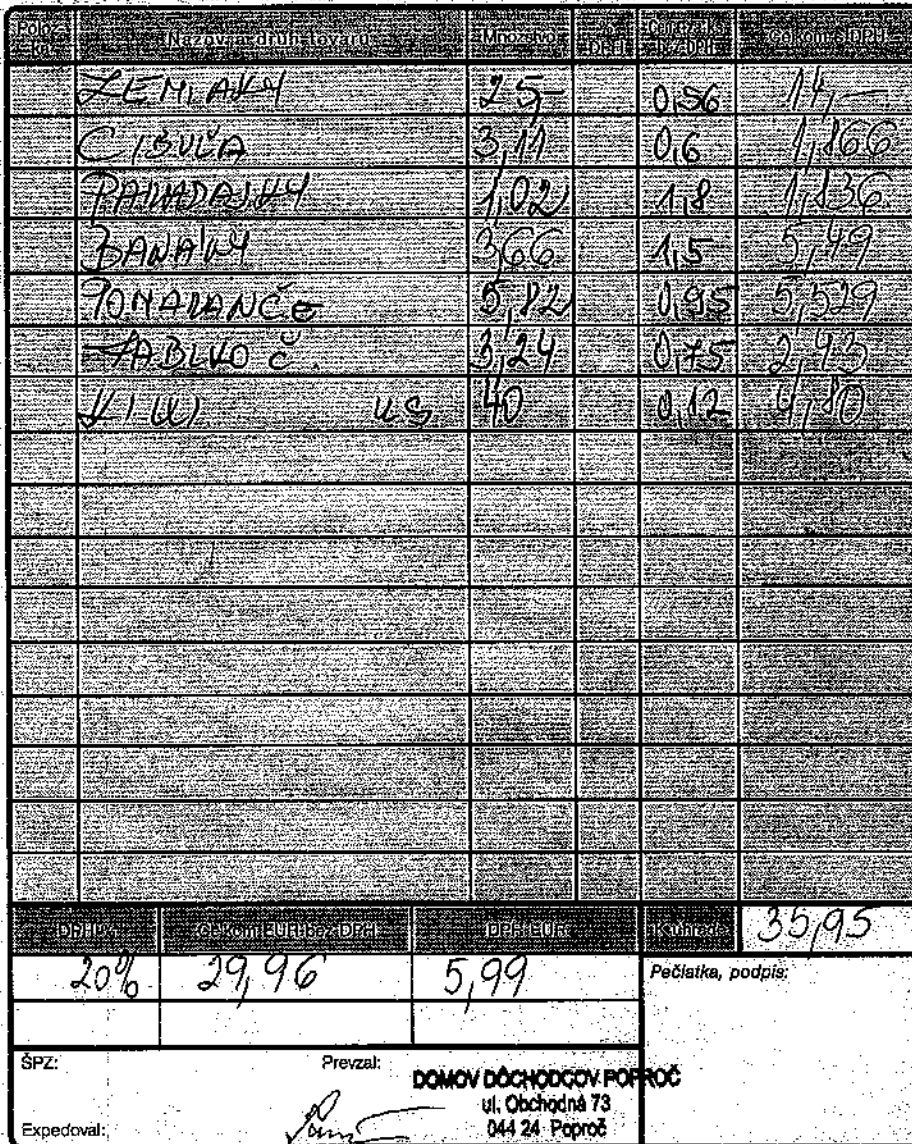 Polož-ka Názov a druh tovaru Množstvo % DPH Cena za j. bez DPH Celkom s DPH
ZEMIAKY 25,- 0,56 14,-
CIBUĽA 3,11 0,6 1,866
PARADAJKY 1,02 1,8 1,836
BANÁNY 3,66 1,5 5,49
POMARANČE 5,82 0,95 5,529
JABLKO Č. 3,24 0,75 2,43
KIWI KS 40 0,12 4,80
DPH % Celkom EUR bez DPH DPH EUR K úhrade 35,95
20% 29,96 5,99 Pečiatka, podpis:
ŠPZ: Prevzal:
DOMOV DÔCHODCOV POPROČ
ul. Obchodná 73
Expedoval: 044 24 Poproč